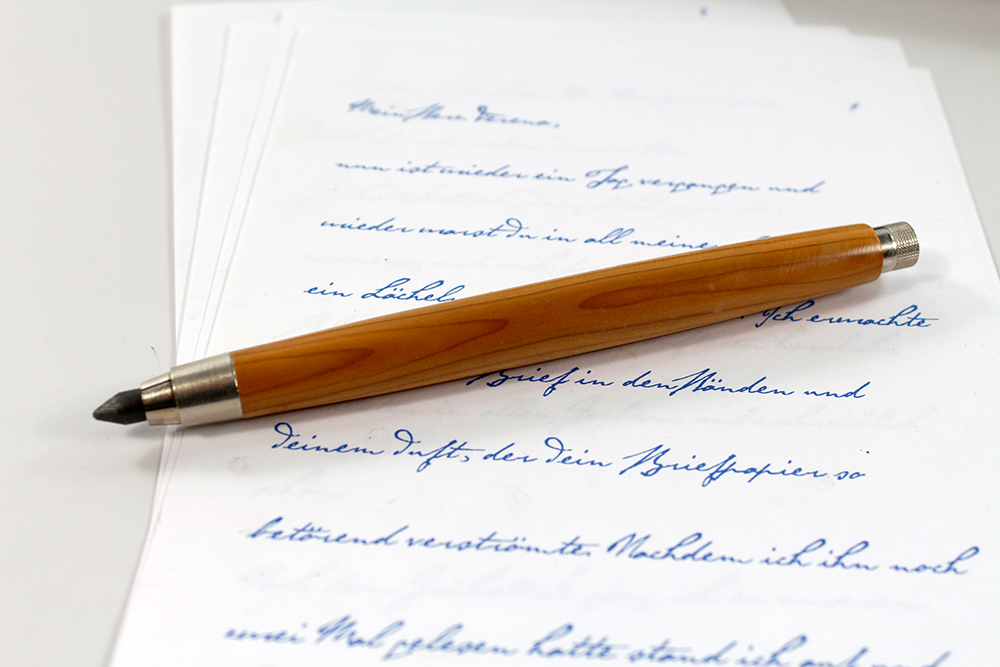 Mein Herz Verena,
nun ist wieder ein Tag vergangen und
wieder warst Du in all meine
ein Lächel
Ich erwachte
Brief in den Händen und
Deinem Duft, der Dein Briefpapier so
betörend verströmte. Nachdem ich ihn noch
zwei Mal gelesen hatte stand ich auf und